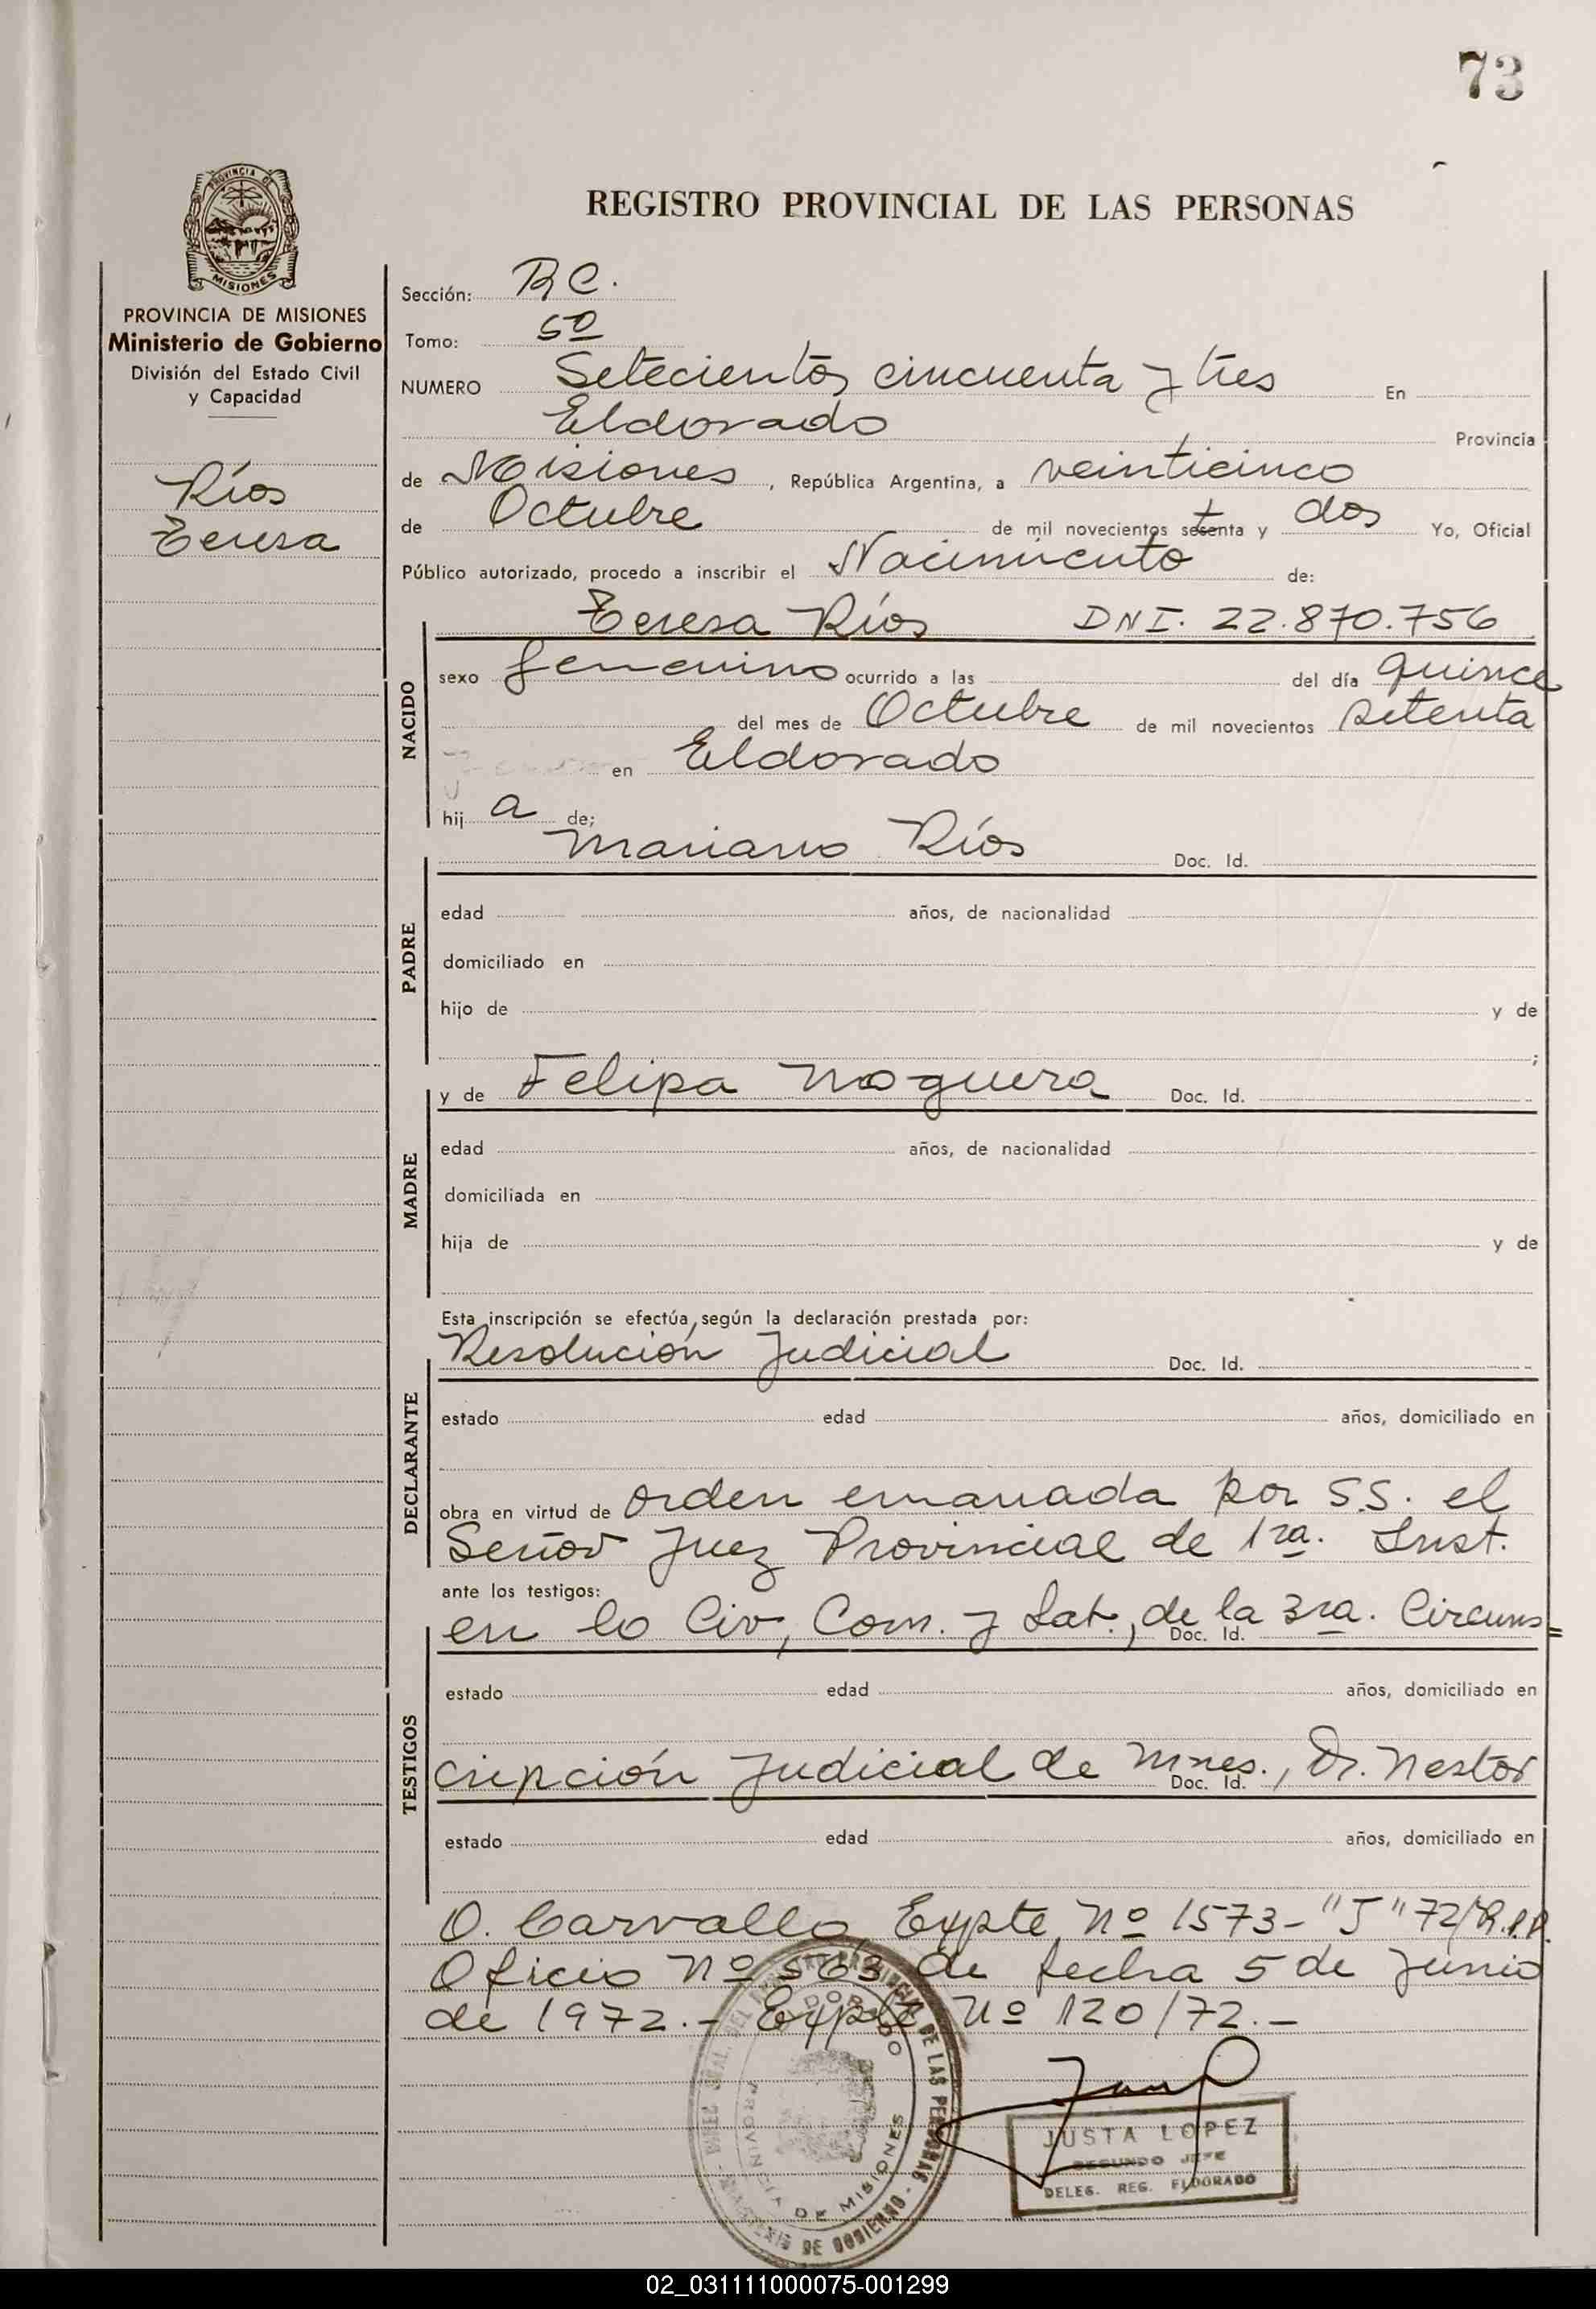 73
REGISTRO PROVINCIAL DE LAS PERSONAS
PROVINCIA DE
MISIONES
PROVINCIA DE MISIONES
Ministerio de Gobierno
División del Estado Civil
y Capacidad
Ríos
Teresa
Sección: RC.
Tomo: 5º
NUMERO Setecientos cincuenta y tres En
Eldorado Provincia
de Misiones, República Argentina, a veinticinco
de Octubre de mil novecientos setenta y dos Yo, Oficial
Público autorizado, procedo a inscribir el Nacimiento de:
NACIDO
Teresa Ríos DNI. 22.870.756
sexo femenino ocurrido a las del día quince
del mes de Octubre de mil novecientos setenta
en Eldorado
hij a de;
PADRE
Mariano Ríos Doc. Id.
edad años, de nacionalidad
domiciliado en
hijo de y de
;
MADRE
y de Felipa Noguera Doc. Id.
edad años, de nacionalidad
domiciliada en
hija de y de
Esta inscripción se efectúa, según la declaración prestada por:
DECLARANTE
Resolución Judicial Doc. Id.
estado edad años, domiciliado en
obra en virtud de orden emanada por S.S. el
Señor Juez Provincial de 1ra. Inst.
ante los testigos:
TESTIGOS
en lo Civ, Com. y Lab., de la 3ra. Circuns=
Doc. Id.
estado edad años, domiciliado en
cripción Judicial de Mnes., Dr. Nestor
Doc. Id.
estado edad años, domiciliado en
O. Carvallo, Expte Nº 1573-"J"72/R.P.P.
Oficio Nº 563 de fecha 5 de Junio
de 1972.- Expte Nº 120/72.-
DE LAS PERSONAS
ELDORADO
PROVINCIA DE MISIONES
DE GOBIERNO
JUSTA LOPEZ
SEGUNDO JEFE
DELEG. REG. ELDORADO
02_031111000075-001299